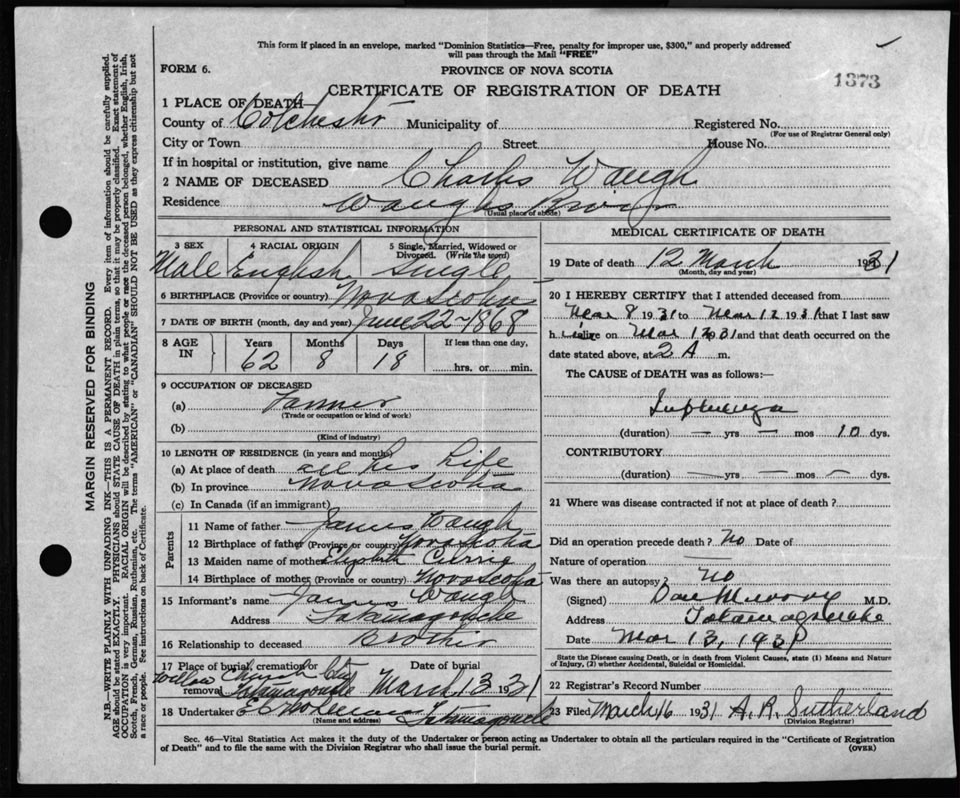 This form if placed in an envelope, marked "Dominion Statistics—Free, penalty for improper use, $300," and properly addressed
will pass through the Mail "FREE"
FORM 6.
PROVINCE OF NOVA SCOTIA
1373
CERTIFICATE OF REGISTRATION OF DEATH
1 PLACE OF DEATH—
County of Colchester Municipality of Registered No.
(For use of Registrar General only)
City or Town Street House No.
If in hospital or institution, give name
2 NAME OF DECEASED Charles Waugh
Residence Waughs River
(Usual place of abode)
PERSONAL AND STATISTICAL INFORMATION
3 SEX 4 RACIAL ORIGIN 5 Single, Married, Widowed or
Divorced. (Write the word)
Male English Single
6 BIRTHPLACE (Province or country) Nova Scotia
7 DATE OF BIRTH (month, day and year) June 22 - 1868
8 AGE IN Years Months Days If less than one day,
62 8 18 hrs. or min.
9 OCCUPATION OF DECEASED
(a) Farmer
(Trade or occupation or kind of work)
(b)
(Kind of industry)
10 LENGTH OF RESIDENCE (in years and months)
(a) At place of death all his life
(b) In province Nova Scotia
(c) In Canada (if an immigrant)
Parents
11 Name of father James Waugh
12 Birthplace of father (Province or country) Nova Scotia
13 Maiden name of mother Elizabeth
14 Birthplace of mother (Province or country) Nova Scotia
15 Informant's name James Waugh
Address Tatamagouche
16 Relationship to deceased Brother
17 Place of burial, cremation or removal Date of burial
Willow Church Cty
Tatamagouche March 13 1931
18 Undertaker Tatamagouche
(Name and address)
MEDICAL CERTIFICATE OF DEATH
19 Date of death 12 March 1931
(Month, day and year)
20 I HEREBY CERTIFY that I attended deceased from
Mar 8 1931 to Mar 12 1931 that I last saw
h im alive on Mar 12 31 and that death occurred on the
date stated above, at 2 A m.
The CAUSE of DEATH was as follows:—
Influenza
(duration) — yrs — mos 10 dys.
CONTRIBUTORY
(duration) — yrs — mos — dys.
21 Where was disease contracted if not at place of death?
Did an operation precede death? No Date of
Nature of operation
Was there an autopsy? No
(Signed) Dan Murray M.D.
Address Tatamagouche
Date Mar 13, 1931
State the Disease causing Death, or in death from Violent Causes, state (1) Means and Nature
of Injury, (2) whether Accidental, Suicidal or Homicidal.
22 Registrar's Record Number
23 Filed March 16 1931 A. R. Sutherland
(Division Registrar)
Sec. 46—Vital Statistics Act makes it the duty of the Undertaker or person acting as Undertaker to obtain all the particulars required in the "Certificate of Registration
of Death" and to file the same with the Division Registrar who shall issue the burial permit.
(OVER)
MARGIN RESERVED FOR BINDING
N.B.—WRITE PLAINLY WITH UNFADING INK—THIS IS A PERMANENT RECORD. Every item of information should be carefully supplied.
AGE should be stated EXACTLY. PHYSICIANS should STATE CAUSE OF DEATH in plain terms, so that it may be properly classified. Exact statement of
OCCUPATION is very important. RACIAL ORIGIN will be described by stating to what people or race the deceased person belonged, whether English, Irish,
Scotch, French, German, Russian, Ruthenian, etc. The terms "AMERICAN" or "CANADIAN" SHOULD NOT BE USED as they express citizenship but not
a race or people. See instructions on back of Certificate.